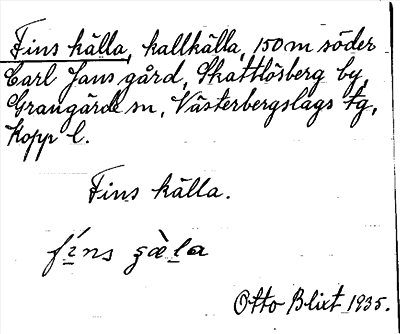 Fins källa, kallkälla, 150 m söder
Carl Jans gård, Skattlösberg by,
Grangärde sn, Västerbergslags tg,
Kopp l.
Fins källa.
fíns ʂæ̀la
Otto Blixt 1935.